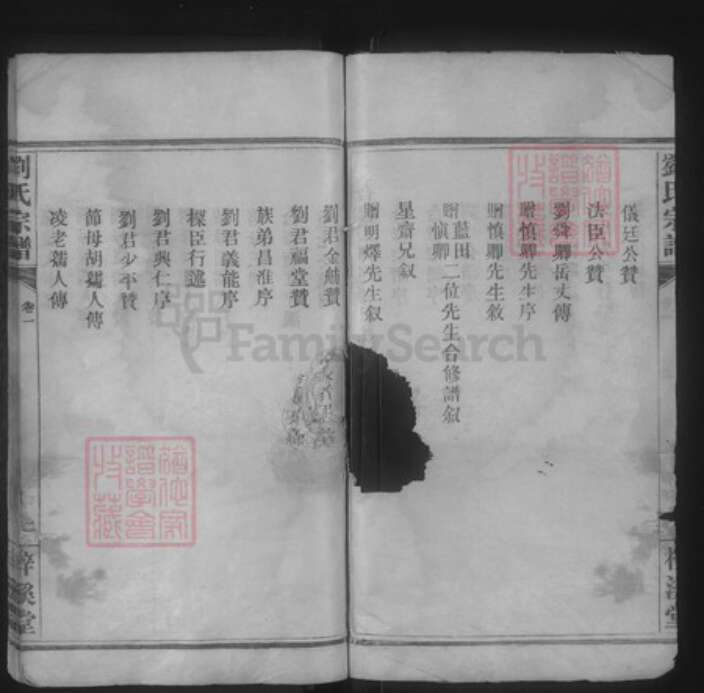 儀廷公贊
法臣公贊
劉舜卿岳丈傳
贈慎卿先生序
贈慎卿先生敘
贈藍田慎卿二位先生合修譜叙
星齋兄叙
贈明燡先生叙
劉君金鏽贊
劉君福堂贊
族弟昌淮序
劉君義能序
樑臣行述
劉君興仁序
劉君少平贊
節母胡孺人傳
凌老孺人傳
劉氏宗譜
卷一
梓溪堂
FamilySearch